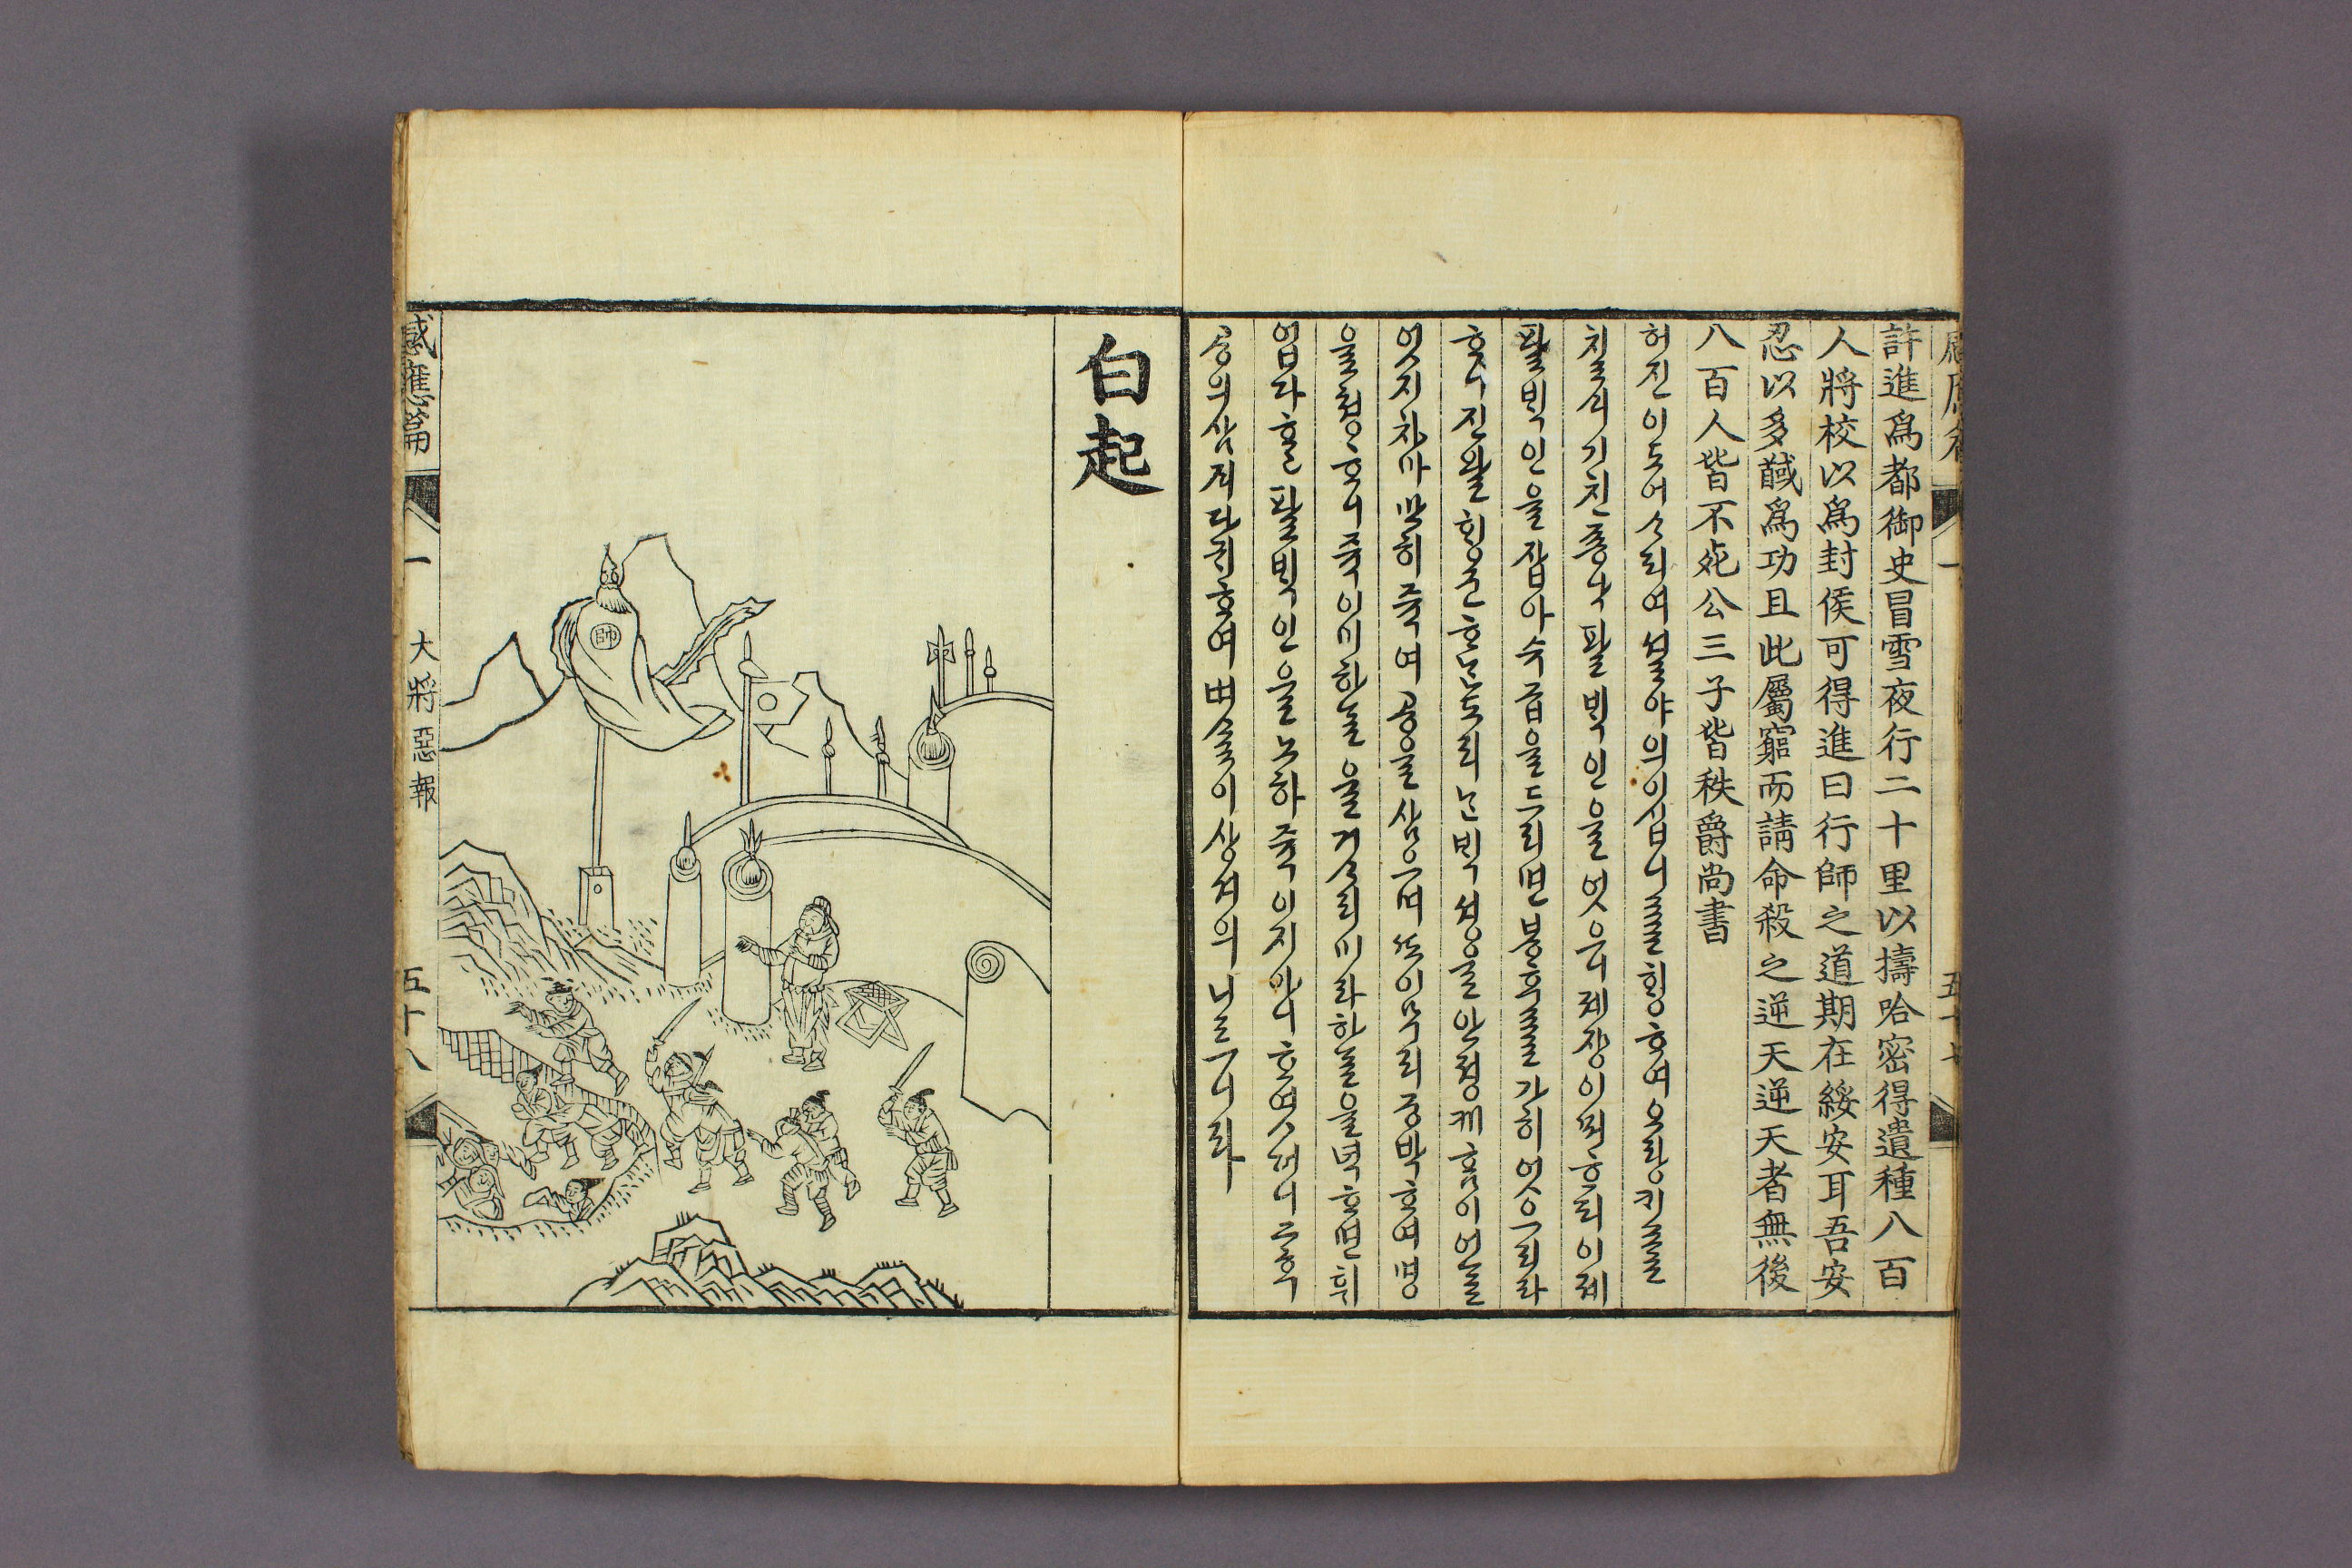 許進爲都御史冒雪夜行二十里以擣哈密得遺種八百
人將校以爲封侯可得進曰行師之道期在綏安耳吾安
忍以多馘爲功且此屬窮而請命殺之逆天逆天者無後
八百人皆不死公三子皆秩爵尚書
허진이도어ᄉᆞ되여셜야의이십니ᄅᆞᆯ힝ᄒᆞ여오랑키ᄅᆞᆯ
치ᄅᆞᄉᆡ기친죵낙팔ᄇᆡᆨ인을엇으니졔쟝이ᄡᅥᄒᆞ되이졔
팔ᄇᆡᆨ인을잡아슈급을드리면봉후ᄅᆞᆯ가히엇으리라
ᄒᆞ니진왈ᄒᆡᆼ군ᄒᆞᄂᆞᆫ도리ᄂᆞᆫᄇᆡᆨ셩을안졍케ᄒᆞᆷ이어ᄂᆞᆯ
엇지ᄎᆞ마만히쥭여공을삼으며ᄯᅩ이무리궁박ᄒᆞ여명
을쳥ᄒᆞ니쥭이미하ᄂᆞᆯ을거ᄉᆞ리미라하ᄂᆞᆯ을녁ᄒᆞ면뒤
업다ᄒᆞ고팔ᄇᆡᆨ인을노하쥭이지아니ᄒᆞ엿더니그후
공의삼ᄌᆡ다진ᄒᆞ여벼ᄉᆞᆯ이샹셔의니르니라
白起
感應篇 一 大將惡報 五十八
帥